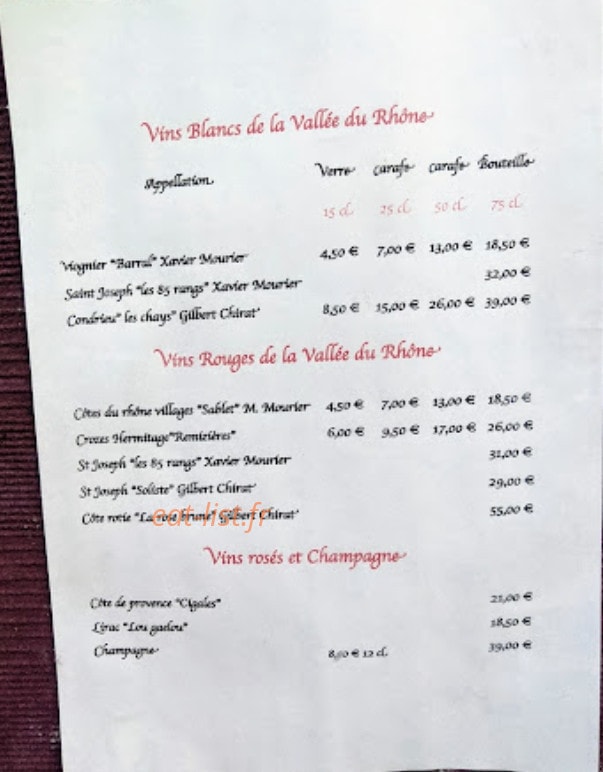 Vins Blancs de la Vallée du Rhône
Appellation Verre carafe carafe Bouteille
15 cl 25 cl 50 cl 75 cl
Viognier "Barral" Xavier Mourier 4,50 € 7,00 € 13,00 € 18,50 €
Saint Joseph "les 85 rangs" Xavier Mourier 32,00 €
Condrieu" les chays" Gilbert Chirat 8,50 € 15,00 € 26,00 € 39,00 €
Vins Rouges de la Vallée du Rhône
Côtes du rhône villages "Sablet" M. Mourier 4,50 € 7,00 € 13,00 € 18,50 €
Crozes Hermitage"Remizières" 6,00 € 9,50 € 17,00 € 26,00 €
St Joseph "les 85 rangs" Xavier Mourier 31,00 €
St Joseph "Soliste" Gilbert Chirat 29,00 €
Côte rotie "La rose brune" Gilbert Chirat 55,00 €
eat-list.fr
Vins rosés et Champagne
Côte de provence "Cigales" 21,00 €
Lirac "Lou gaelou" 18,50 €
Champagne 8,50 € 12 cl 39,00 €